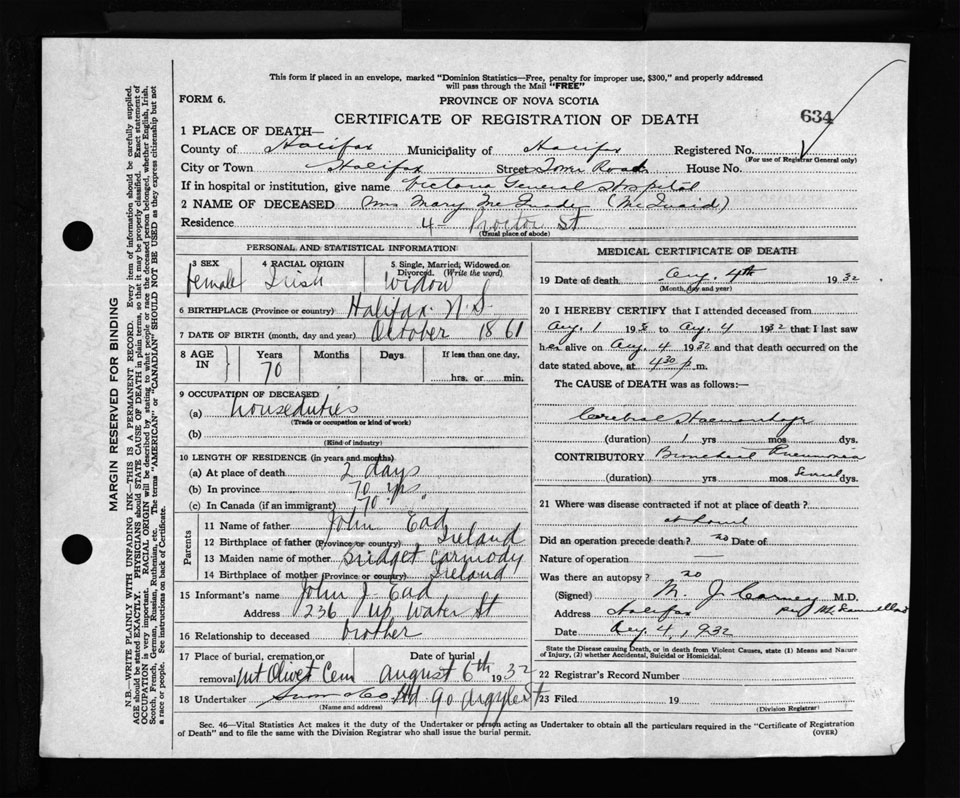 This form if placed in an envelope, marked "Dominion Statistics—Free, penalty for improper use, $300," and properly addressed
will pass through the Mail "FREE"
FORM 6.
PROVINCE OF NOVA SCOTIA
CERTIFICATE OF REGISTRATION OF DEATH
634
1 PLACE OF DEATH—
County of Halifax Municipality of Halifax Registered No.
(For use of Registrar General only)
City or Town Halifax Street Tower Road House No.
If in hospital or institution, give name Victoria General Hospital
2 NAME OF DECEASED Mrs Mary McQuade (McQuaid)
Residence 4 St
(Usual place of abode)
PERSONAL AND STATISTICAL INFORMATION
3 SEX 4 RACIAL ORIGIN 5 Single, Married, Widowed or
Divorced. (Write the word)
female Irish Widow
6 BIRTHPLACE (Province or country) Halifax N.S.
7 DATE OF BIRTH (month, day and year) October 1861
8 AGE IN Years Months Days. If less than one day,
70
hrs. or min.
9 OCCUPATION OF DECEASED
(a) houseduties
(Trade or occupation or kind of work)
(b)
(Kind of industry)
10 LENGTH OF RESIDENCE (in years and months)
(a) At place of death 2 days
(b) In province 70 yrs
(c) In Canada (if an immigrant) 70 "
Parents
11 Name of father John Ead
12 Birthplace of father (Province or country) Ireland
13 Maiden name of mother Bridget Carmody
14 Birthplace of mother (Province or country) Ireland
15 Informant's name John J. Ead
Address 236 Up Water St
16 Relationship to deceased brother
17 Place of burial, cremation or Date of burial
removal Mt Olivet Cem August 6th 1932
18 Undertaker Snow & Co Ltd 90 Argyle St
(Name and address)
MEDICAL CERTIFICATE OF DEATH
19 Date of death Aug. 4th 1932
(Month, day and year)
20 I HEREBY CERTIFY that I attended deceased from
Aug. 1 193 to Aug. 4 1932 that I last saw
her alive on Aug. 4 1932 and that death occurred on the
date stated above, at 4:30 p.m.
The CAUSE of DEATH was as follows:—
Cerebral Haemorrhage
(duration) 1 yrs mos dys.
CONTRIBUTORY Bronchial Pneumonia
(duration) yrs mos dys.
21 Where was disease contracted if not at place of death?
at home
Did an operation precede death? no Date of
Nature of operation —
Was there an autopsy? no
(Signed) M. J. Carney M.D.
Address Halifax per
Date Aug 4, 1932
State the Disease causing Death, or in death from Violent Causes, state (1) Means and Nature
of Injury, (2) whether Accidental, Suicidal or Homicidal.
22 Registrar's Record Number
23 Filed 19
(Division Registrar)
Sec. 46—Vital Statistics Act makes it the duty of the Undertaker or person acting as Undertaker to obtain all the particulars required in the "Certificate of Registration
of Death" and to file the same with the Division Registrar who shall issue the burial permit.
(OVER)
MARGIN RESERVED FOR BINDING
N.B.—WRITE PLAINLY WITH UNFADING INK—THIS IS A PERMANENT RECORD. Every item of information should be carefully supplied.
AGE should be stated EXACTLY. PHYSICIANS should STATE CAUSE OF DEATH in plain terms, so that it may be properly classified. Exact statement of
OCCUPATION is very important. RACIAL ORIGIN will be described by stating to what people or race the deceased person belonged, whether English, Irish,
Scotch, French, German, Russian, Ruthenian, etc. The terms "AMERICAN" or "CANADIAN" SHOULD NOT BE USED as they express citizenship but not
a race or people. See instructions on back of Certificate.